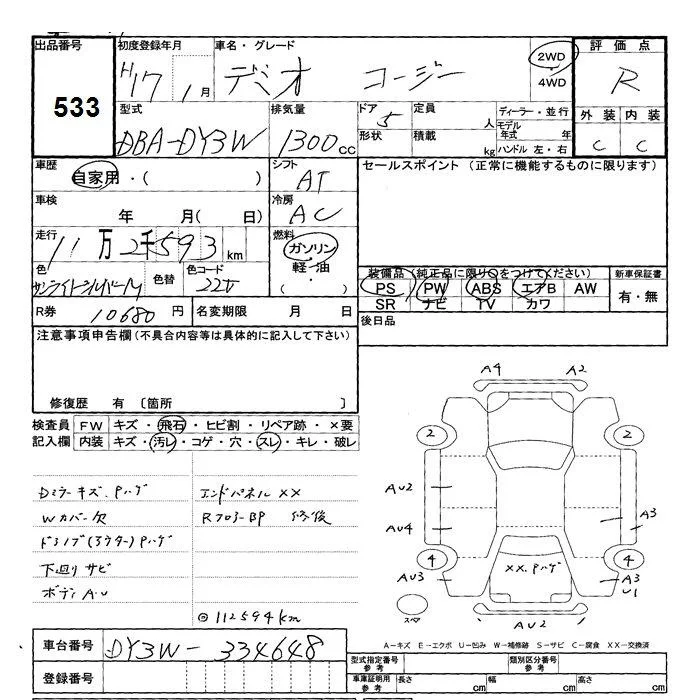 出品番号
533
初度登録年月
H17年1月
車名・グレード
デミオ コージー
2WD
4WD
評価点
R
外装 内装
C C
型式
DBA-DY3W
排気量
1300cc
ドア 5
形状
定員 人
積載 kg
ディーラー・並行
モデル年式 年
ハンドル 左・右
車歴
自家用・( )
シフト
AT
セールスポイント (正常に機能するものに限ります)
車検
年 月( 日)
冷房
AC
走行
11万2千593km
燃料
ガソリン
軽・油
( ・ )
色
サンライトシルバーM
色替
色コード
22V
装備品(純正品に限り○をつけてください)
PS PW ABS エアB AW
SR ナビ TV カワ
新車保証書
有・無
R券 10680円
名変期限 月 日
後日品
注意事項申告欄(不具合内容等は具体的に記入して下さい)
修復歴 有 〔箇所 〕
検査員
記入欄
FW キズ・飛石・ヒビ割・リペア跡・×要
内装 キズ・汚レ・コゲ・穴・スレ・キレ・破レ
Dミラーキズ、Pハゲ
Wカバー欠
ドアノブ(アウター)Pハゲ
下廻りサビ
ボディA・U
エンドパネルXX
Rフロアー BP 修後
◎112594km
A4 A2
2 2
AU2
AU4
A3
4 4
AU3
XX.Pハゲ
A3
U1
スペア
AU2
A-キズ E-エクボ U-凹み W-補修跡 S-サビ C-腐食 XX-交換済
車台番号
DY3W-334648
登録番号
型式指定番号
参考
類別区分番号
参考
車庫証明用
参考
長さ cm 幅 cm 高さ cm